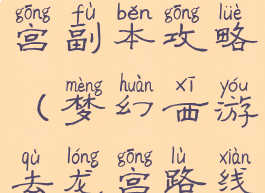 gōng fù běn gōng lüè
宫副本攻略
mèng huàn xī yóu
（梦幻西游
qù lóng gōng lù xiàn
去龙宫路线